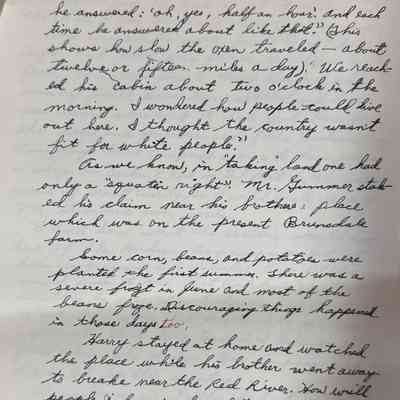 he answered: 'oh, yes, half an hour', and each
time he answered about like that." (This
shows how slow the oxen traveled — about
twelve or fifteen miles a day). 'We reach-
ed his cabin about two o'clock in the
morning. I wondered how people could live
out here. I thought the country wasn't
fit for white people."
As we know, in "taking" land one had
only a "squater right". Mr. Gummer stak-
ed his claim near his brothers; place
which was on the present Brunsdale
farm.
Some corn, beans, and potatoes were
planted the first summer. There was a
severe frozt in June and most of the
beans froze. Discouraging things happened
in those days too.
Harry stayed at home and watched
the place while his brother went away
to breake near the Red River. How will
people